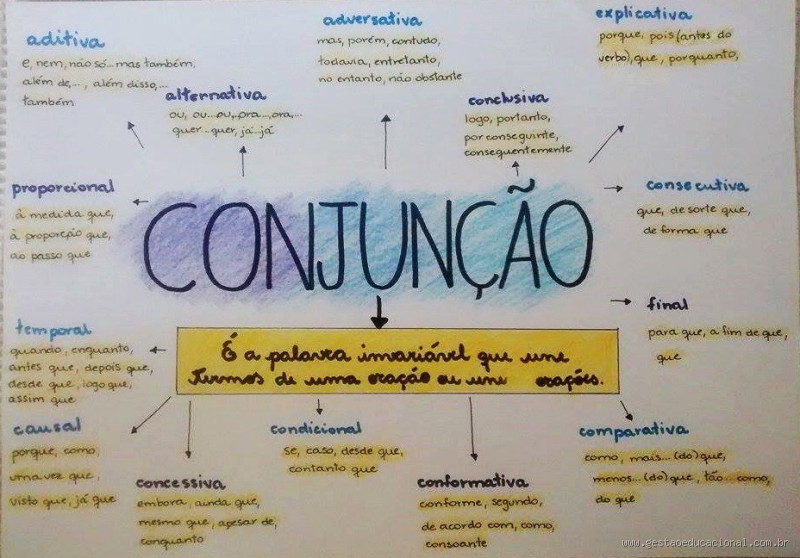 aditiva
e, nem, não só...mas também,
além de..., além disso,...
também
alternativa
ou, ou...ou, ora...ora,...
quer...quer, já...já
adversativa
mas, porém, contudo,
todavia, entretanto,
no entanto, não obstante
conclusiva
logo, portanto,
por conseguinte,
consequentemente
explicativa
porque, pois (antes do
verbo), que, porquanto,
proporcional
à medida que,
à proporção que,
ao passo que
CONJUNÇÃO
consecutiva
que, de sorte que,
de forma que
final
para que, a fim de que,
que
É a palavra invariável que une
termos de uma oração ou une orações.
temporal
quando, enquanto,
antes que, depois que,
desde que, logo que,
assim que
causal
porque, como,
uma vez que,
visto que, já que
concessiva
embora, ainda que,
mesmo que, apesar de,
conquanto
condicional
se, caso, desde que,
contanto que
conformativa
conforme, segundo,
de acordo com, como,
consoante
comparativa
como, mais...(do) que,
menos...(do) que, tão...como,
do que
www.gestaoeducacional.com.br